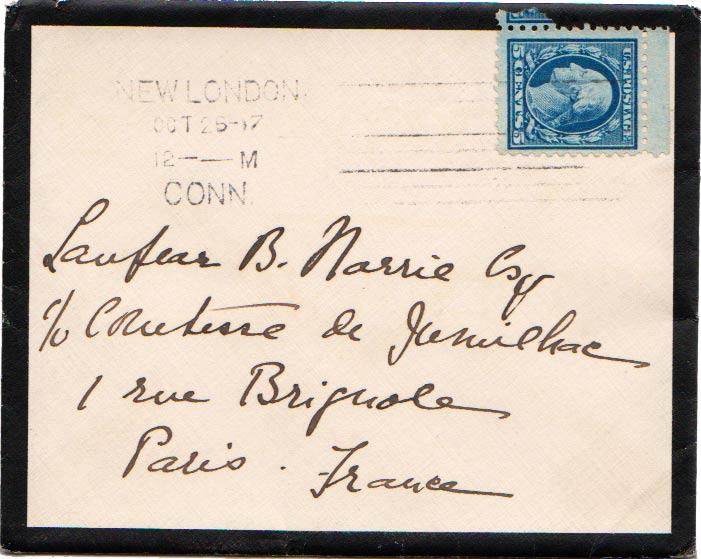 NEW LONDON
OCT 26-17
12-—M
CONN.
5 CENTS 5
U.S. POSTAGE
Lanfear B. Norrie Esq
c/o Comtesse de Jumilhac
1 rue Brignole
Paris. France